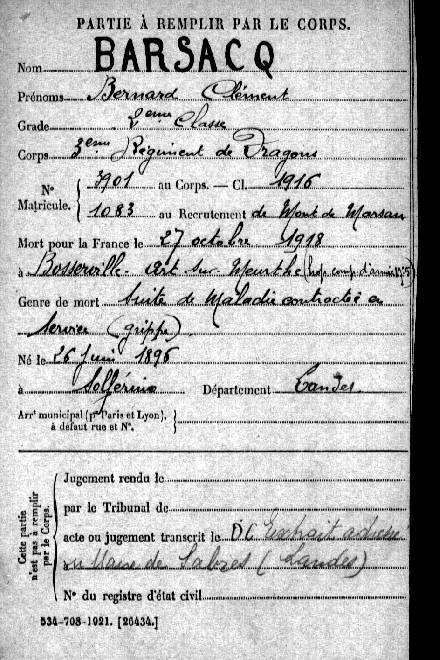 PARTIE À REMPLIR PAR LE CORPS.
Nom BARSACQ
Prénoms Bernard Clément
Grade 2ème Classe
Corps 3ème Régiment de Dragons
N° Matricule. { 3901 au Corps. — Cl. 1916
1083 au Recrutement de Mont de Marsan
Mort pour la France le 27 octobre 1918
à Bosserville - Art sur Meurthe (hop. comp. d'armée n°5)
Genre de mort Suite de Maladie contractée en
service (grippe)
Né le 26 juin 1896
à Solférino Département Landes
Arrt municipal (pr Paris et Lyon), à défaut rue et N°. }
Cette partie n'est pas à remplir par le Corps.
Jugement rendu le
par le Tribunal de
acte ou jugement transcrit le DC Extrait adressé
au Maire de Sabres (Landes)
N° du registre d'état civil
534-708-1921. [26434.]